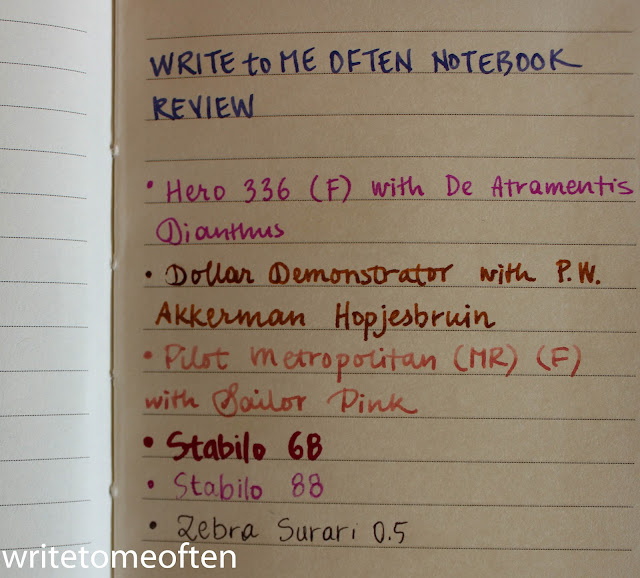 WRITE to ME OFTEN NOTEBOOK
REVIEW
• Hero 336 (F) with De Atramentis
Dianthus
• Dollar Demonstrator with P.W.
Akkerman Hopjesbruin
• Pilot Metropolitan (MR) (F)
with Sailor Pink
• Stabilo 68
• Stabilo 88
• Zebra Surari 0.5
writetomeoften